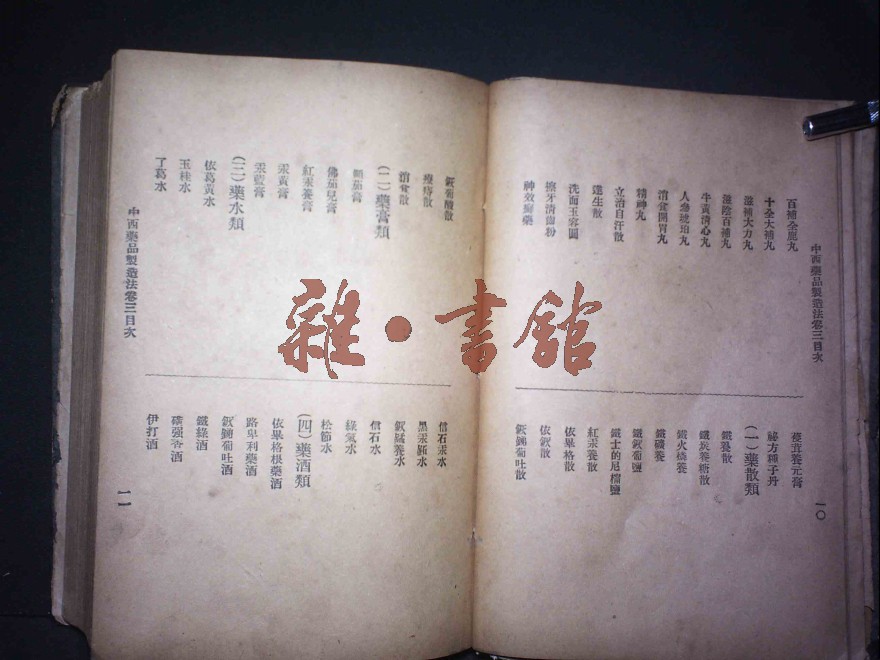 中西藥品製造法卷三目次
百補全鹿丸
十全大補丸
滋補大力丸
滋陰百補丸
牛黃清心丸
人參琥珀丸
消食開胃丸
精神丸
立治自汗散
達生散
洗面玉容圓
擦牙清齒粉
神效癬藥
葠茸養元膏
祕方種子丹
(一)藥散類
鐵養散
鐵炭養糖散
鐵火橋養
鐵礦養
鐵鈊葡鹽
鐵士的尼檔鹽
紅汞養散
依畢格散
依鈊散
鈊銻葡吐散
一〇
鈊葡酸散
療痔散
消食散
(二)藥膏類
顛茄膏
佛茄兒膏
紅汞養膏
汞黃膏
汞藍膏
(三)藥水類
依葛黃水
玉桂水
丁葛水
信石汞水
黑汞顯水
鈊錳養水
信石水
綠氣水
松節水
(四)藥酒類
依畢格根藥酒
路卑利藥酒
鈊銻葡吐酒
鐵綠酒
磺强香酒
伊打酒
中西藥品製造法卷三目次
一一
雜·書館